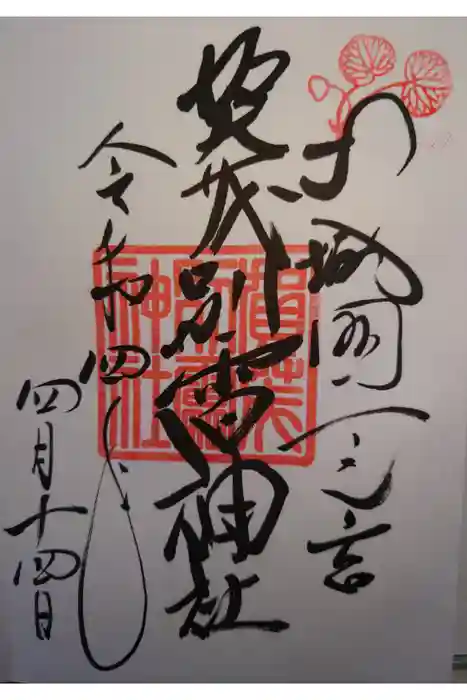 山城國一之宮
賀茂別雷神社
令和四年
四月十四日
賀茂別雷神社